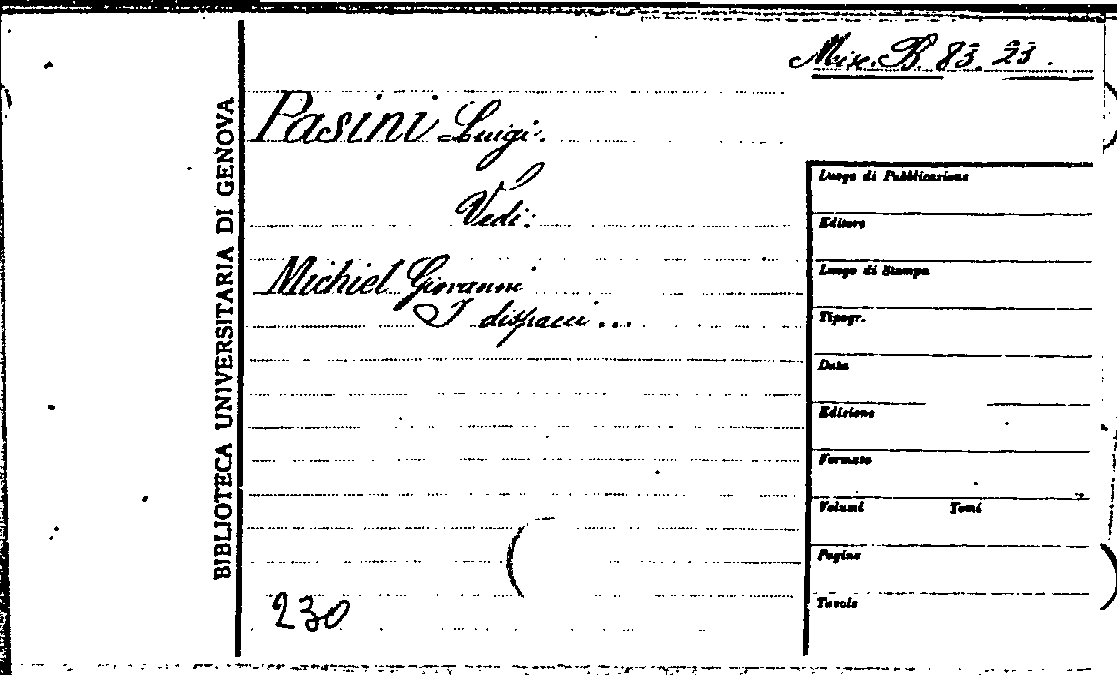 Misc. B. 83. 23.
BIBLIOTECA UNIVERSITARIA DI GENOVA
Pasini Luigi.
Vedi:
Michiel Giovanni
I dispacci...
230
Luogo di Pubblicazione
Editore
Luogo di Stampa
Tipogr.
Data
Edizione
Formato
Volumi Tomi
Pagine
Tavole